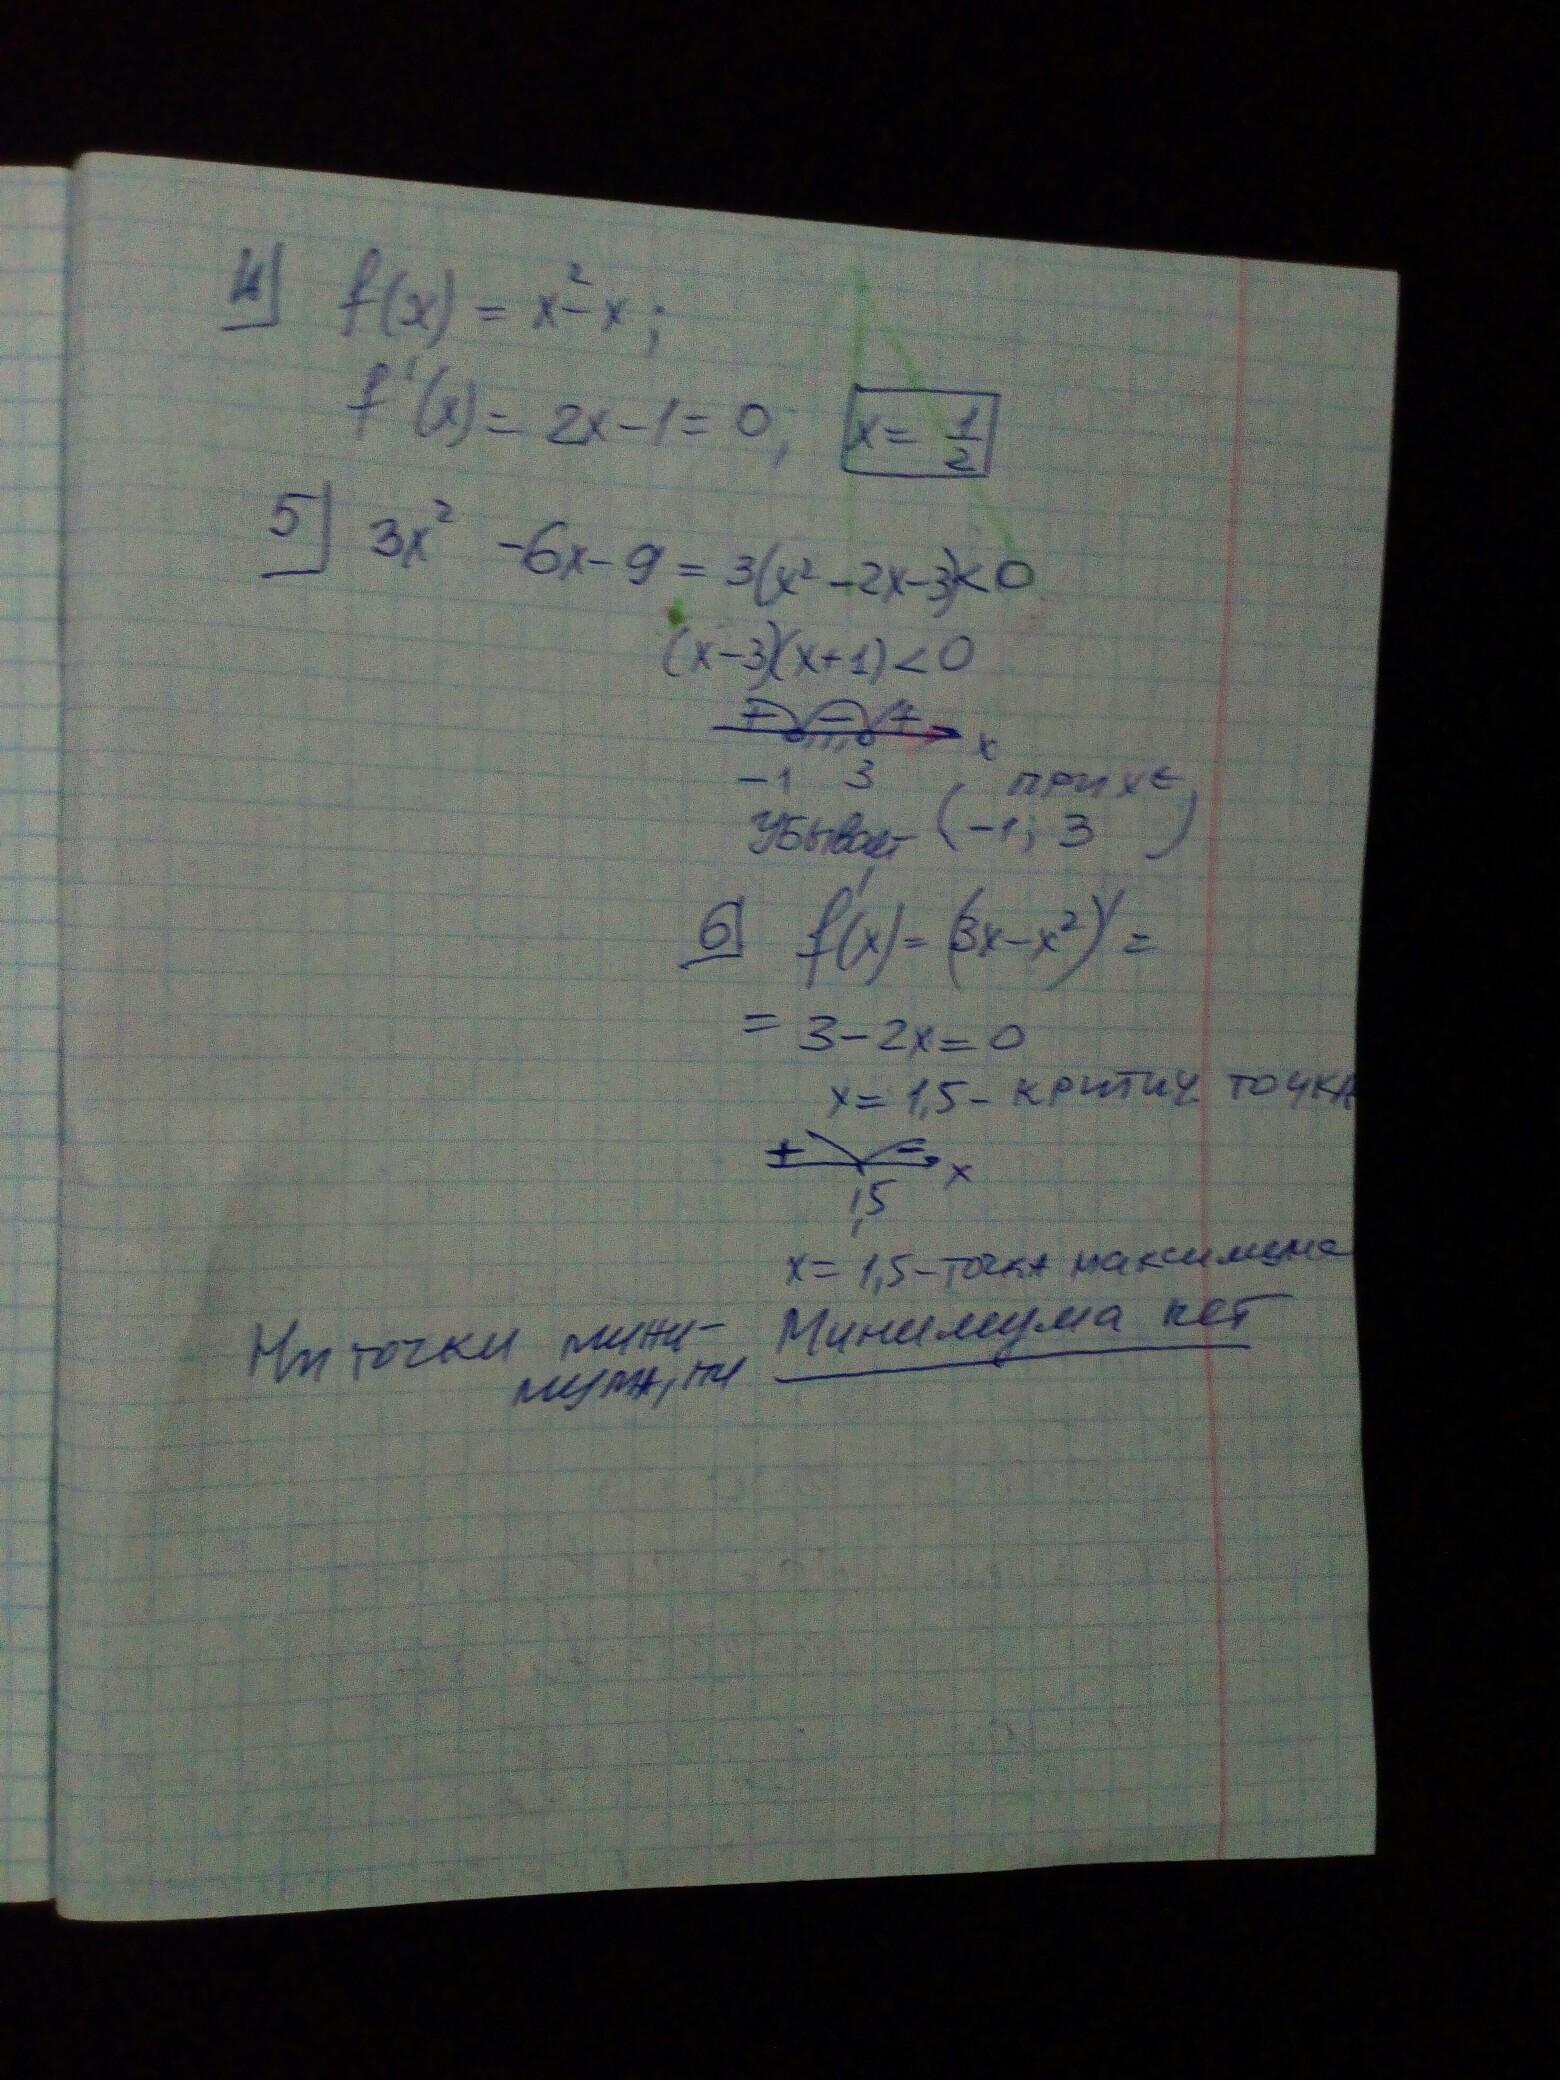 4] f(x) = x²-x;
f'(x) = 2x-1 = 0; x = 1/2
5] 3x² -6x-9 = 3(x²-2x-3)<0
(x-3)(x+1)<0
+ - + x
-1 3 при x∈
убывает (-1; 3)
6] f'(x) = (3x-x²)' =
= 3-2x = 0
x = 1,5 - критич точка
+ - x
1,5
x = 1,5 - точка максимума
Ни точки мини- Минимума нет
мума, ни